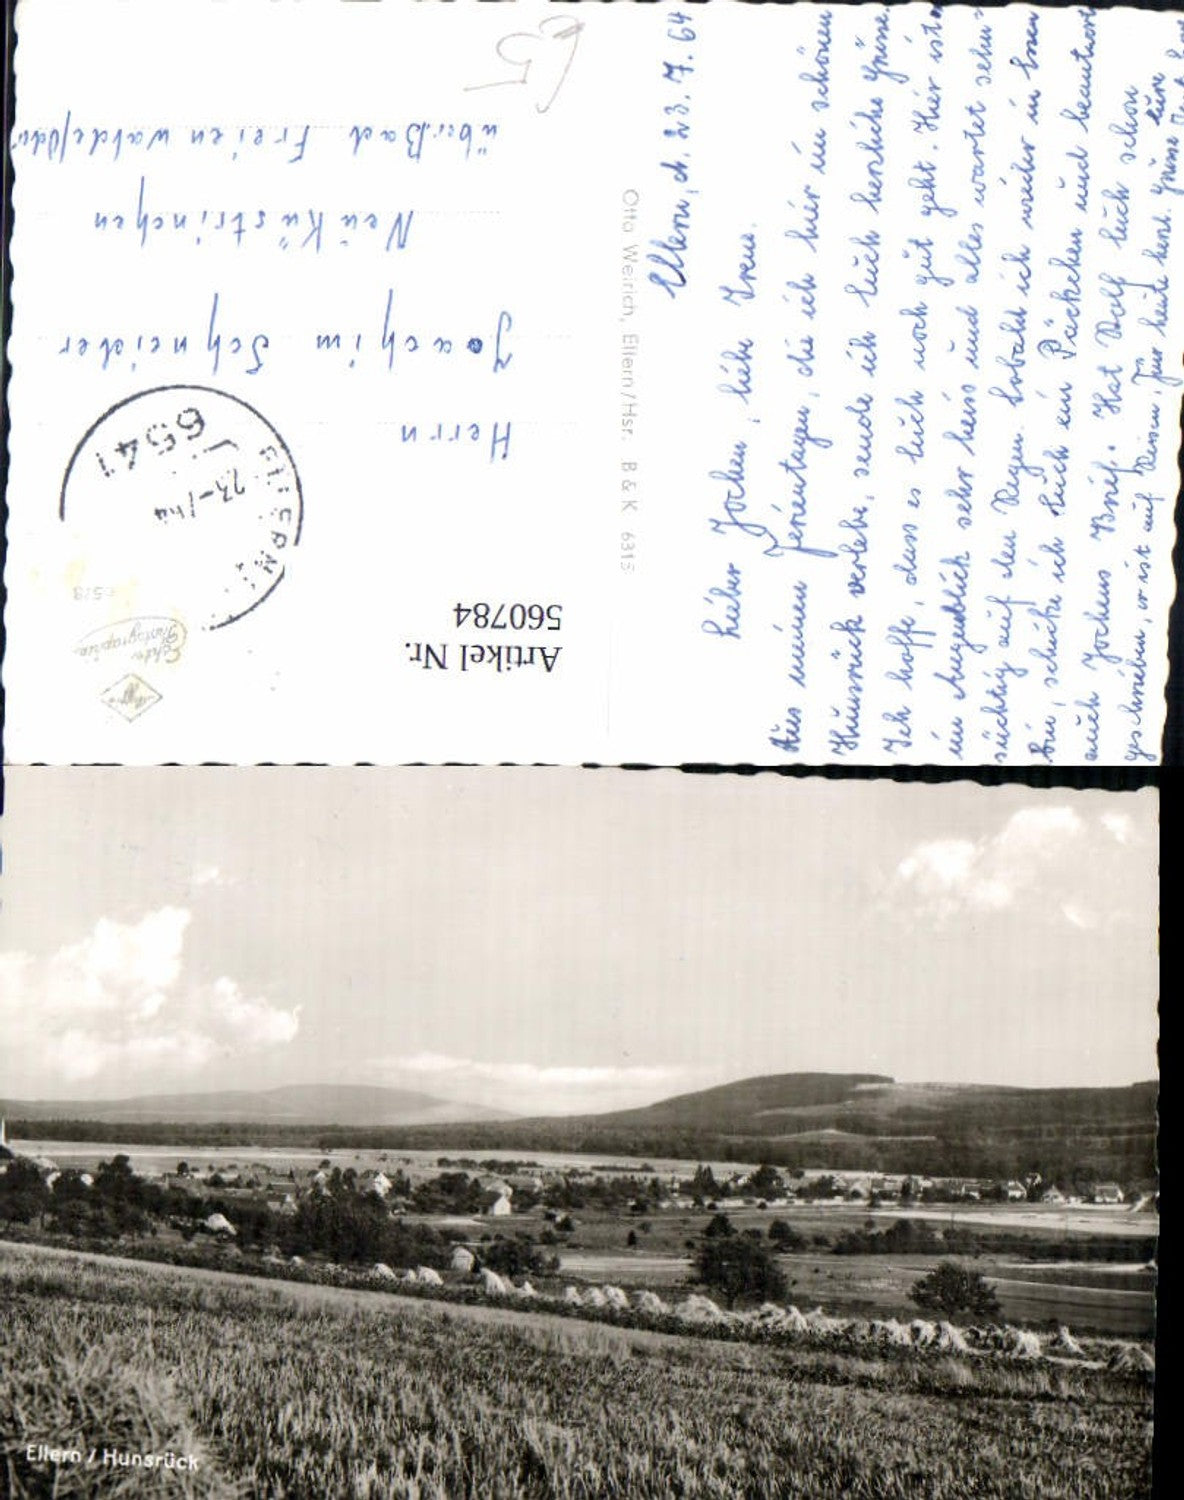 Ellern, d. 23.7.64
Lieber Jochen, liebe Irene.
Aus meinen Ferientagen, die ich hier im schönen
Hunsrück verlebe, sende ich Euch herzliche Grüsse.
Ich hoffe, dass es Euch noch gut geht. Hier ist
im Augenblick sehr heiss und alles wartet sehn-
süchtig auf den Regen. Sobald ich wieder in
bin, schicke ich Euch ein Päckchen und beantworte
auch Jochens Brief. Hat Rolf Euch schon
geschrieben, er ist auf Reisen. Für heute herzl. Grüsse Eure
Otto Weirich, Ellern/Hsr. B & K 6315
Herrn
Joachim Schneider
Neuküstrinchen
über Bad Freienwalde/Oder
65
ELLERN
23.-7.64
6541
Echte
Photographie
Artikel Nr.
560784
Ellern / Hunsrück